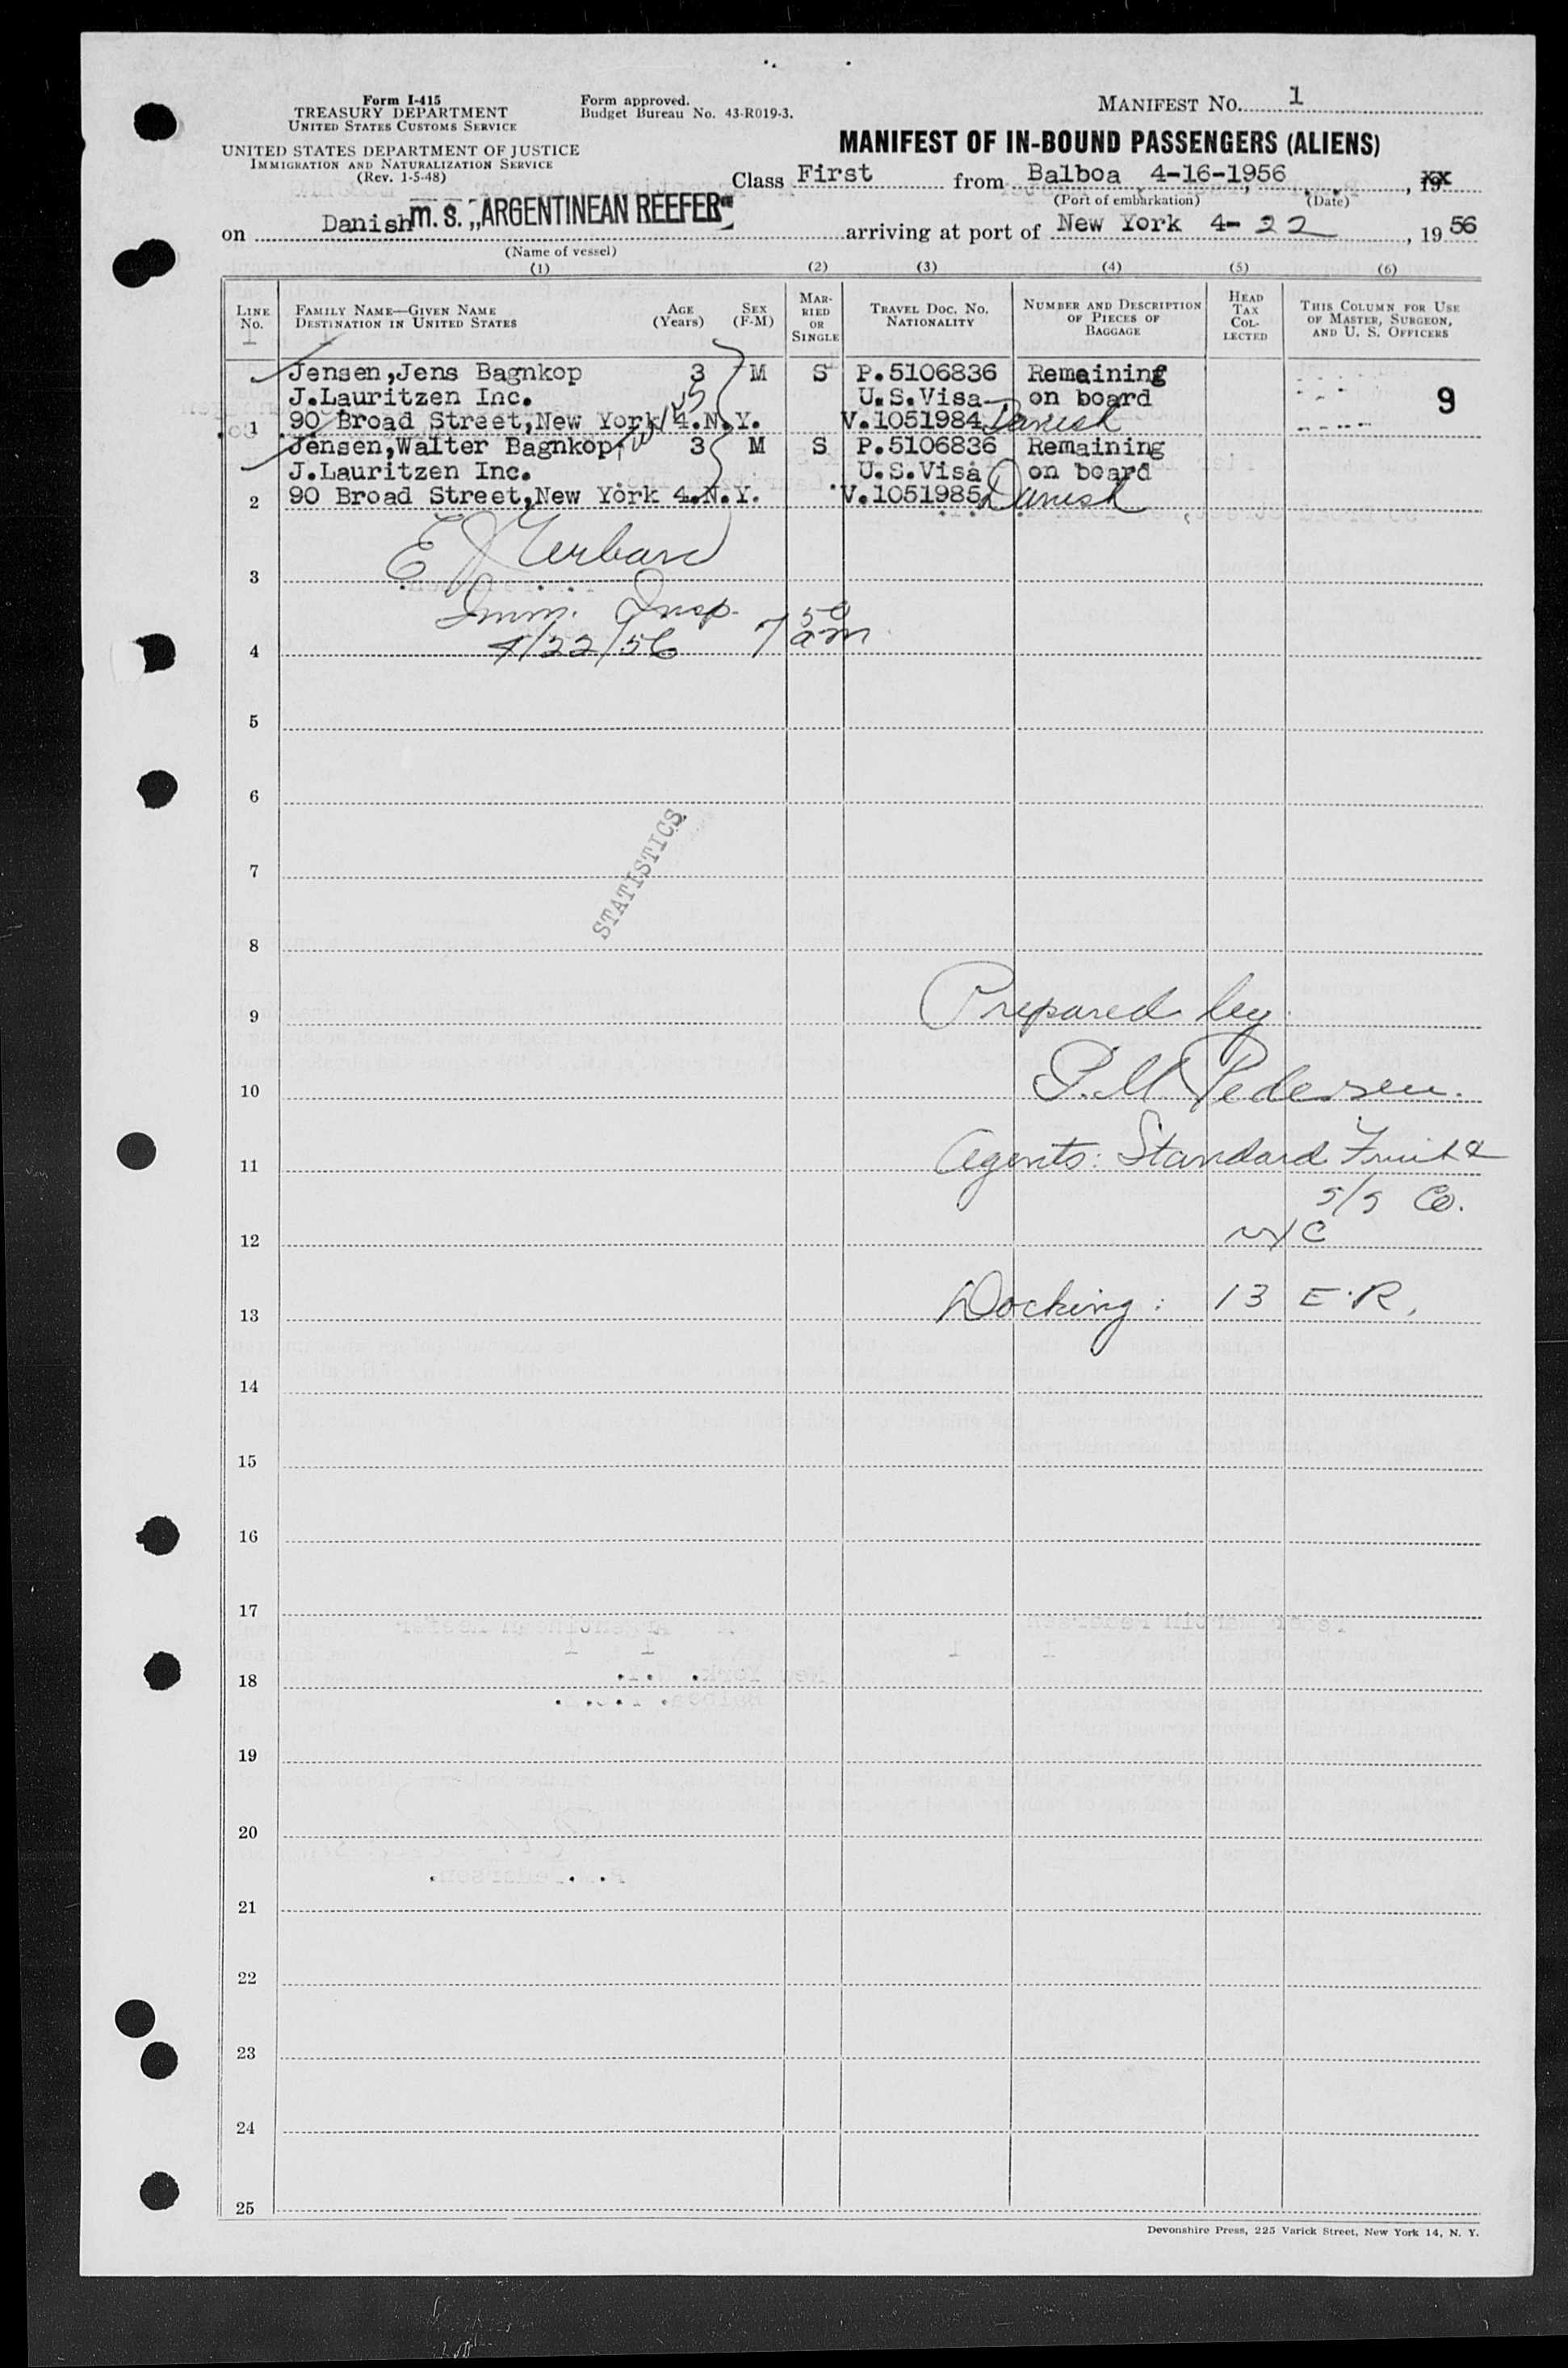 Form I-415
TREASURY DEPARTMENT
UNITED STATES CUSTOMS SERVICE
UNITED STATES DEPARTMENT OF JUSTICE
IMMIGRATION AND NATURALIZATION SERVICE
(Rev. 1-5-48)
Form approved.
Budget Bureau No. 43-R019-3.
MANIFEST NO. 1
MANIFEST OF IN-BOUND PASSENGERS (ALIENS)
Class First from Balboa 4-16-1956, 19xx
(Port of embarkation) (Date)
on Danish M. S. „ARGENTINEAN REEFER" arriving at port of New York 4-22, 19 56
(Name of vessel)
(1) (2) (3) (4) (5) (6)
LINE NO. FAMILY NAME—GIVEN NAME DESTINATION IN UNITED STATES AGE (Years) SEX (F-M) MARRIED OR SINGLE TRAVEL DOC. NO. NATIONALITY NUMBER AND DESCRIPTION OF PIECES OF BAGGAGE HEAD TAX COLLECTED THIS COLUMN FOR USE OF MASTER, SURGEON, AND U. S. OFFICERS
Jensen,Jens Bagnkop 3 M S P.5106836 Remaining
J.Lauritzen Inc. U.S.Visa on board 9
1 90 Broad Street,New York 4.N.Y. V.1051984 Danish
Jensen,Walter Bagnkop 3 M S P.5106836 Remaining
J.Lauritzen Inc. U.S.Visa on board
2 90 Broad Street,New York 4.N.Y. V.1051985 Danish
3
Imm. Insp.
4 4/22/56 7 50 am
5
6
STATISTICS
7
8
9 Prepared by
10 P.M. Pedersen.
11 Agents: Standard Fruit &
S/S Co.
12 NYC
13 Docking: 13 E.R.
14
15
16
17
18
19
20
21
22
23
24
25
Devonshire Press, 225 Varick Street, New York 14, N. Y.